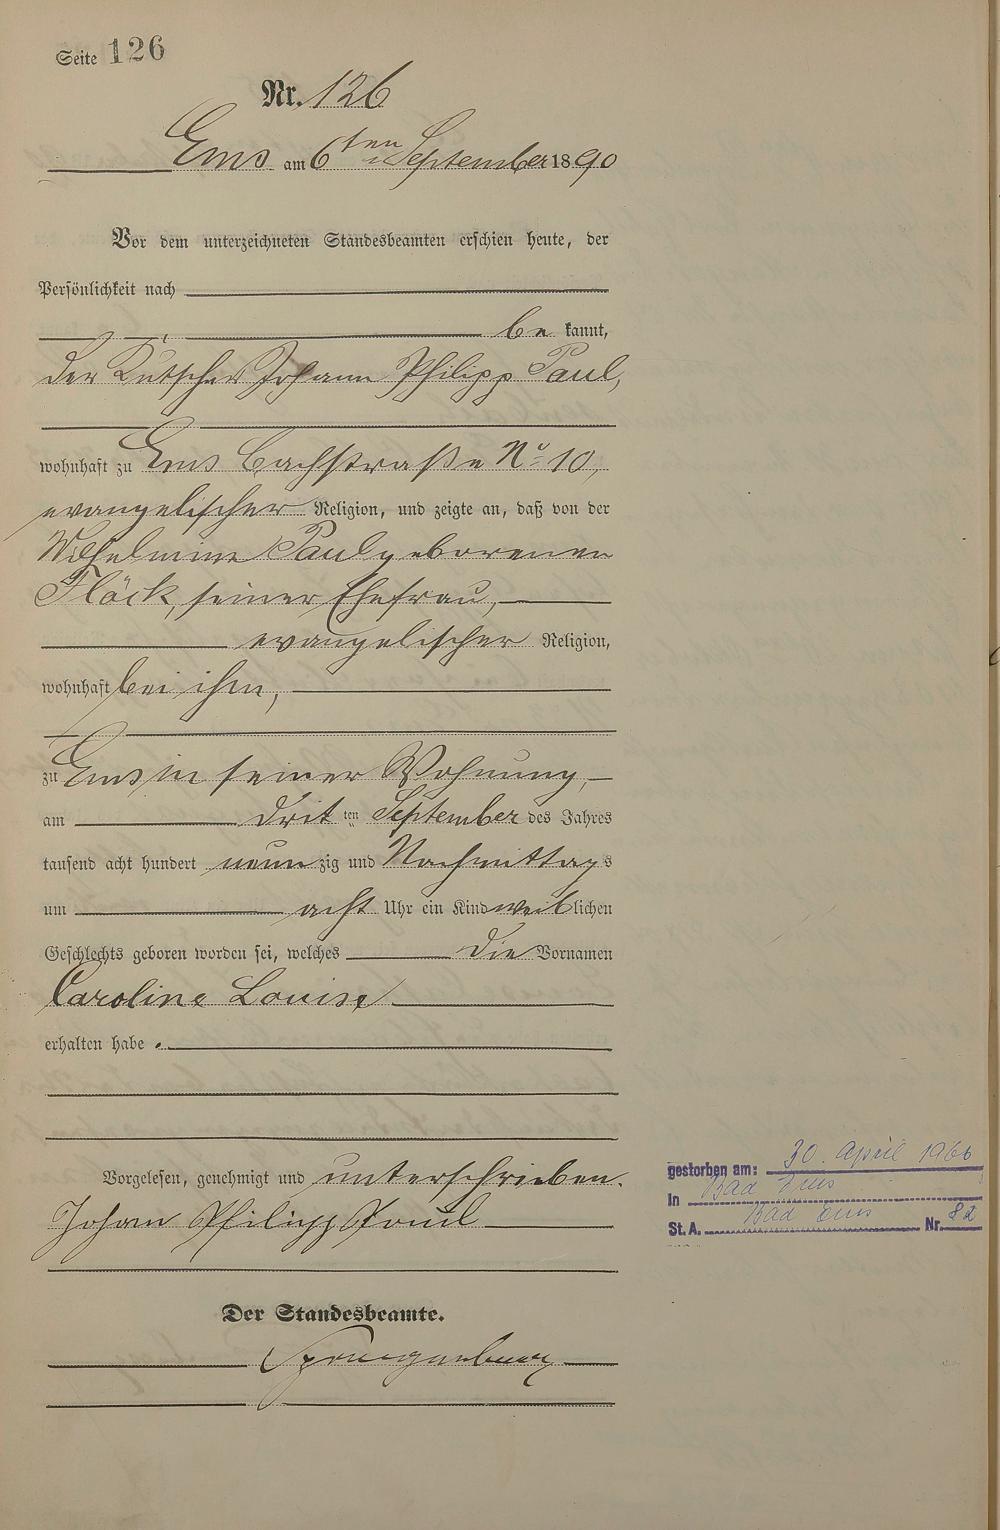 Seite 126
Nr. 126
Ems am 6ten September 1890
Vor dem unterzeichneten Standesbeamten erschien heute, der
Persönlichkeit nach
be kannt,
der Kutscher Johann Philipp Paul,
wohnhaft zu Ems Bachstraße No 10,
evangelischer Religion, und zeigte an, daß von der
Wilhelmine Paul geborenen
Flöck, seiner Ehefrau,
evangelischer Religion,
wohnhaft bei ihm,
zu Ems in seiner Wohnung,
am dritten September des Jahres
tausend acht hundert neunzig und Nachmittags
um acht Uhr ein Kind weiblichen
Geschlechts geboren worden sei, welches die Vornamen
Caroline Louise
erhalten habe.
Vorgelesen, genehmigt und unterschrieben.
Johann Philipp Paul
Der Standesbeamte.
gestorben am: 30. April 1966
In Bad Ems
St. A. Bad Ems Nr. 82